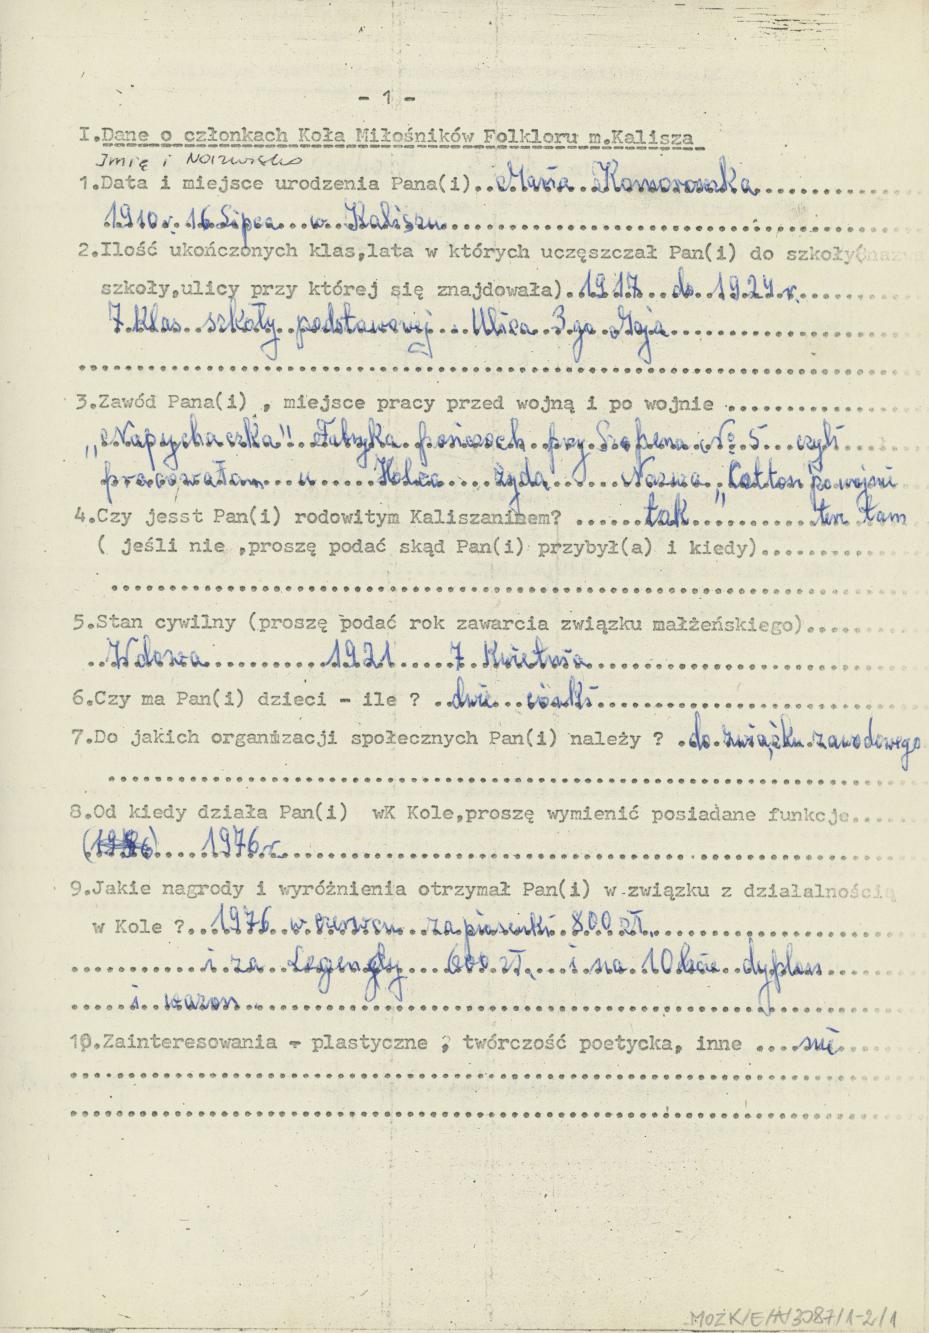 - 1 -
I.Dane o członkach Koła Miłośników Folkloru m.Kalisza
Imię i Nazwisko
1.Data i miejsce urodzenia Pana(i)..Maria Komorowska
1910 r. 16 Lipca w Kaliszu
2.Ilość ukończonych klas,lata w których uczęszczał Pan(i) do szkoły(nazwa
szkoły,ulicy przy której się znajdowała).1917 do 1924 r.
7 klas szkoły podstawowej Ulica 3-go Maja
3.Zawód Pana(i) , miejsce pracy przed wojną i po wojnie
"Napychaczka" Fabryka pończoch przy Szopena № 5 czyli
pracowałam u Holca żyda Nazwa "Cotton po wojni
4.Czy jesst Pan(i) rodowitym Kaliszaninem? tak " tam
( jeśli nie ,proszę podać skąd Pan(i) przybył(a) i kiedy)
5.Stan cywilny (proszę podać rok zawarcia związku małżeńskiego)
Wdowa 1931 7 Kwietnia
6.Czy ma Pan(i) dzieci - ile ? dwie córki
7.Do jakich organizacji społecznych Pan(i) należy ? do związku zawodowego
8.Od kiedy działa Pan(i) wK Kole,proszę wymienić posiadane funkcje
1976 r.
9.Jakie nagrody i wyróżnienia otrzymał Pan(i) w związku z działalnością
w Kole ? 1976 w czerwcu za piosenki 800 zł.
i za Legendy 600 zł. i na 10 lecie dyplom
i wazon
10.Zainteresowania - plastyczne , twórczość poetycka, inne nie
MOZK/E/A/3087/1-2/1